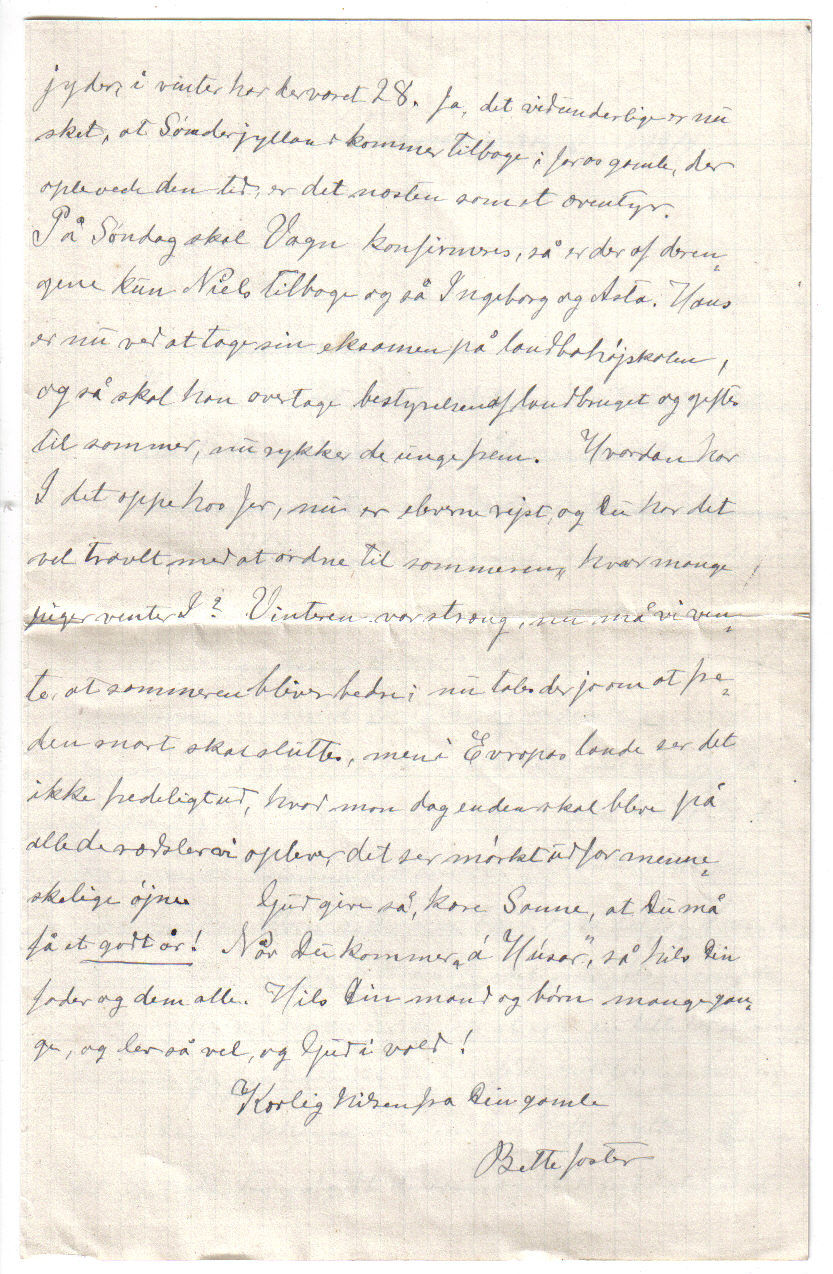 jyder, i vinter har der været 28. Ja, det vidunderlige er nu
sket, at Sønderjylland kommer tilbage; for os gamle, der
oplevede den tid, er det næsten som et æventyr.
På Søndag skal Vagn konfirmeres, så er der af dren„
gene kun Niels tilbage og så Ingeborg og Asta. Hans
er nu ved at tage sin eksamen på landbohøjskolen,
og så skal han overtage bestyrelsen af landbruget og giftes
til sommer, nu rykker de unge frem. Hvordan har
I det oppe hos Jer, nu er eleverne rejst, og Du har det
vel travlt med at ordne til sommeren, hvor mange
piger venter I? Vinteren var stræng, nu må vi ven„
te, at sommeren bliver bedre; nu tales der jo om at fre„
den snart skal sluttes, men i Evropas lande ser det
ikke fredeligt ud, hvad mon dog enden skal blive på
alle de rædsler vi oplever, det ser mørkt ud for menne„
skelige øjne. Gud give så, kære Sanne, at Du må
få et godt år! Når Du kommer „á Húsar", så hils Din
fader og dem alle. Hils Din mand og børn mange gan„
ge, og lev så vel, og Gud i vold!
Kærlig hilsen fra Din gamle
Bette faster